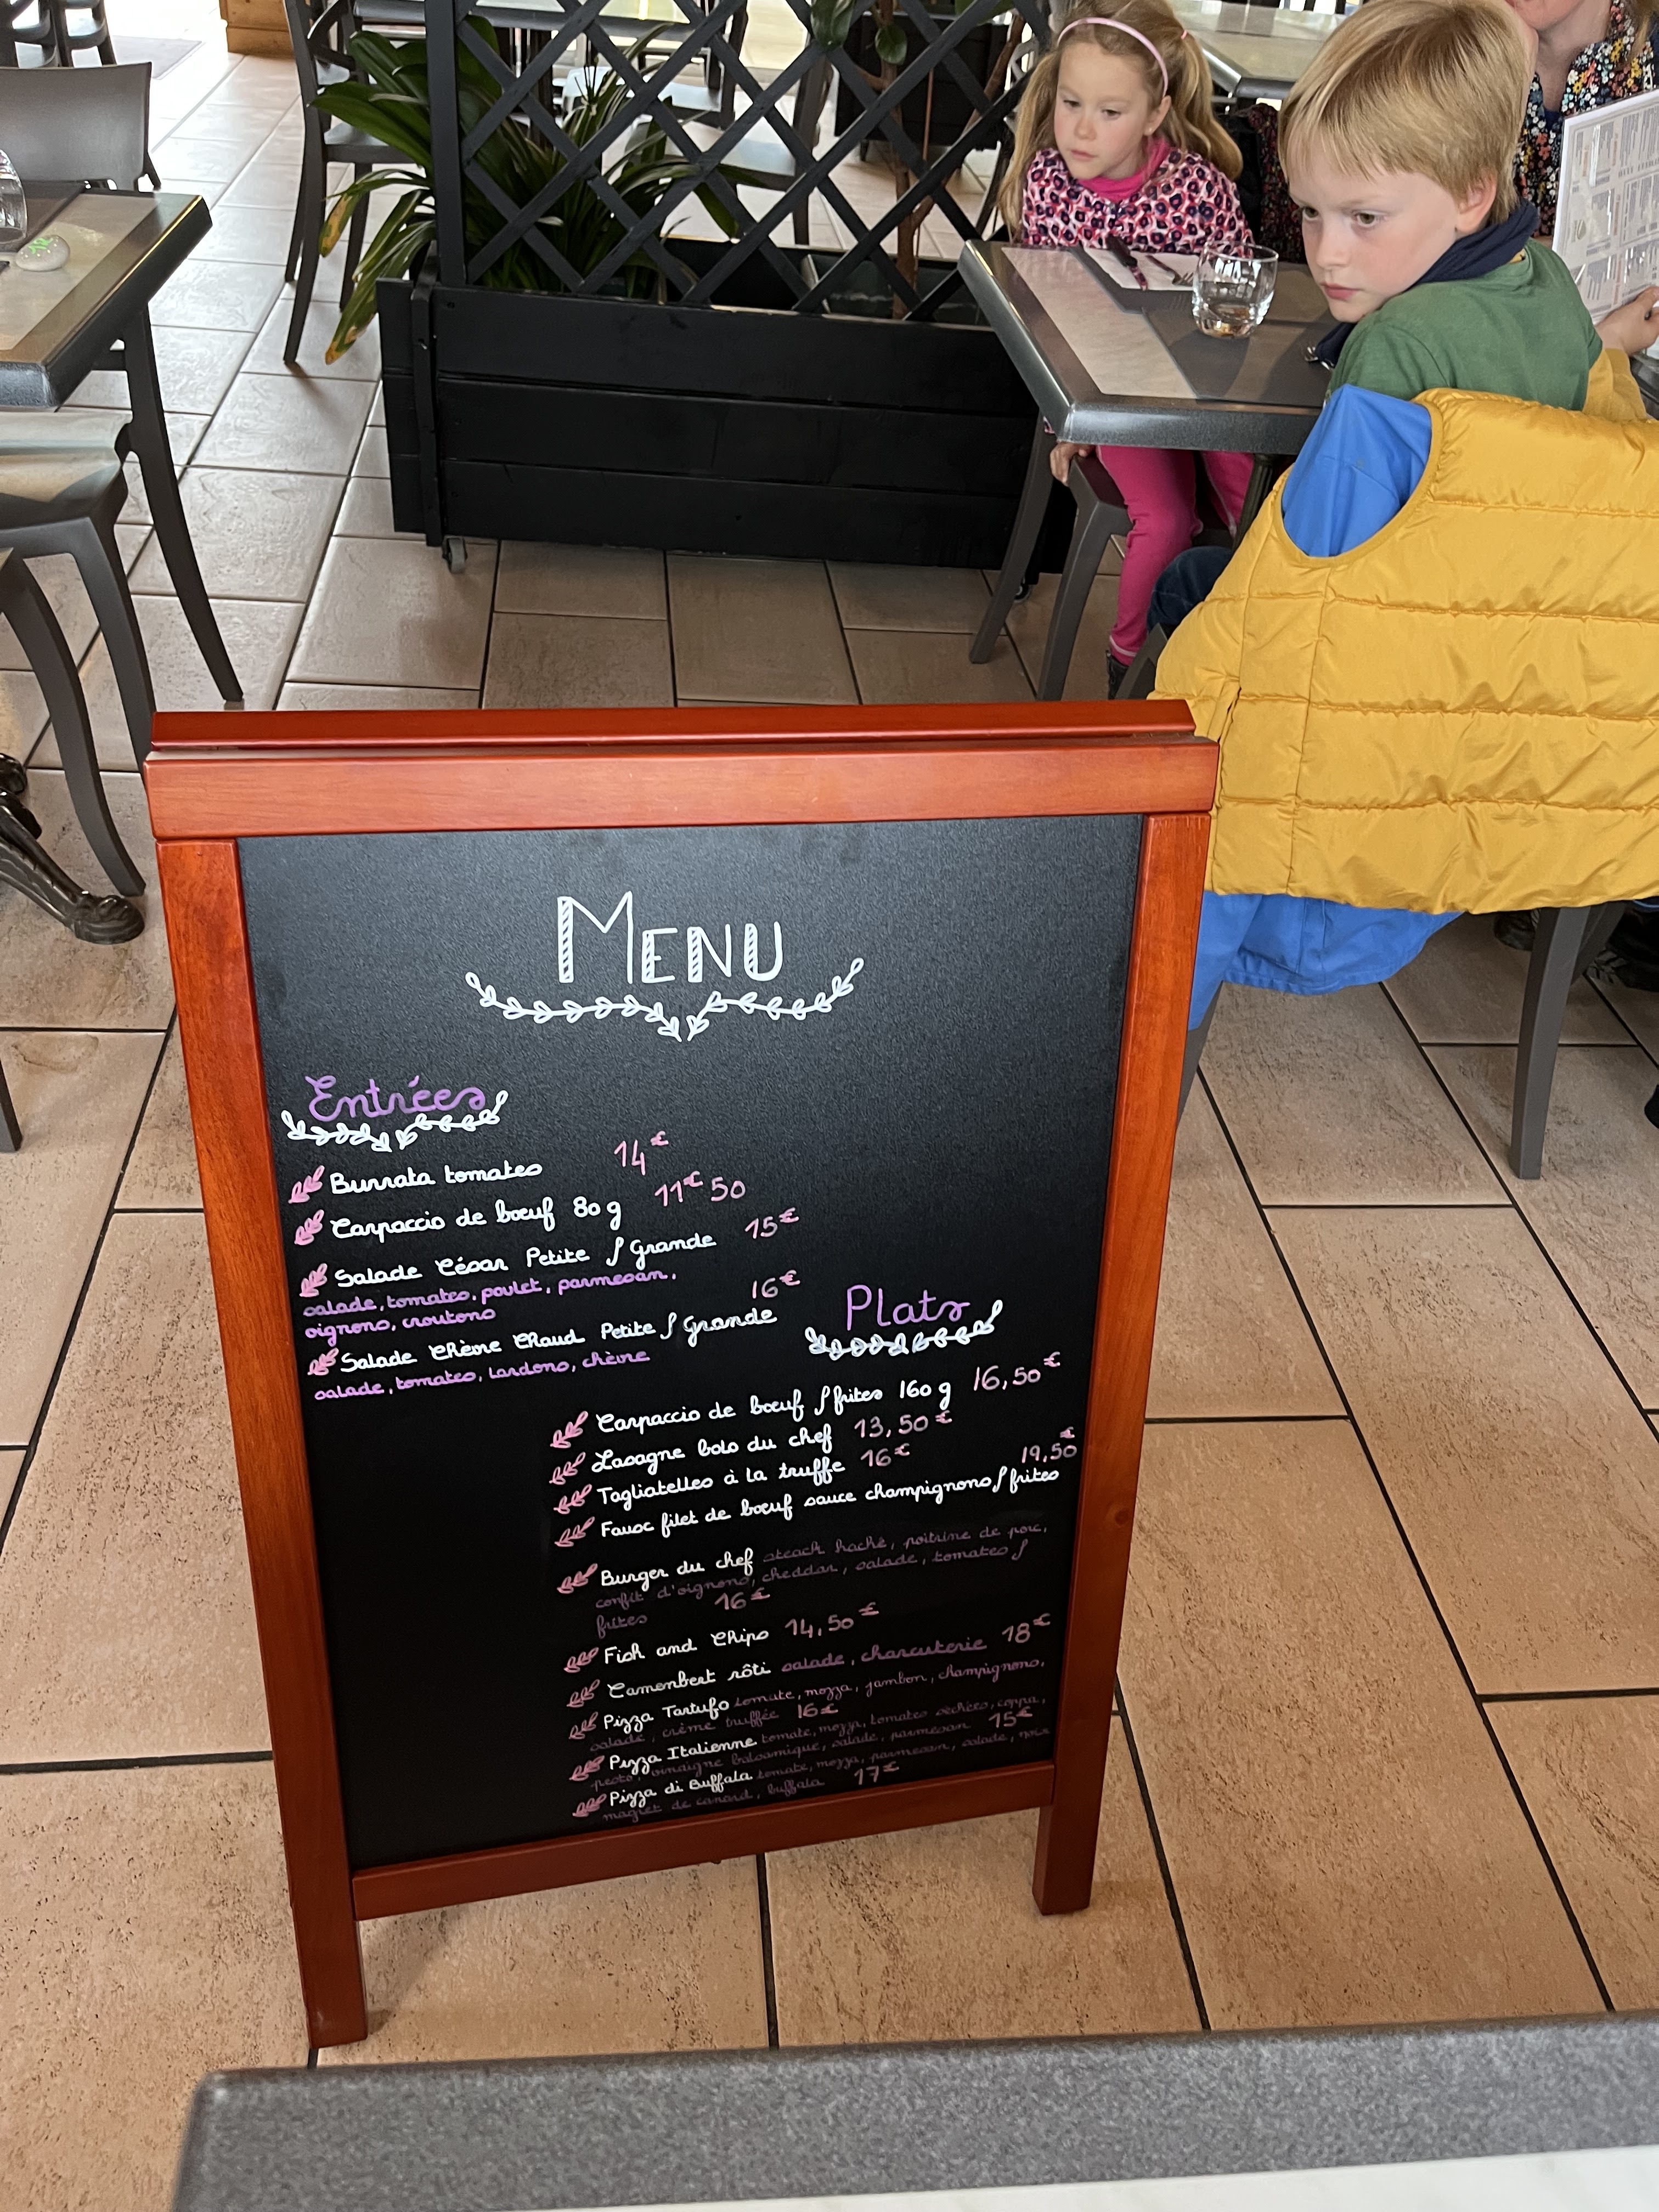 MENU
Entrées
Burrata tomates 14€
Carpaccio de bœuf 80 g 11€50
Salade César Petite / Grande 15€
salade, tomates, poulet, parmesan,
oignons, croutons
Salade Chèvre Chaud Petite / Grande 16€
salade, tomates, lardons, chèvre
Plats
Carpaccio de bœuf / frites 160 g 16,50€
Lasagne bolo du chef 13,50€
Tagliatelles à la truffe 16€
Faux filet de bœuf sauce champignons / frites 19,50€
Burger du chef steack haché, poitrine de porc,
confit d'oignons, cheddar, salade, tomates /
frites 16€
Fish and Chips 14,50€
Camembert rôti salade, charcuterie 18€
Pizza Tartufo tomate, mozza, jambon, champignons,
salade, crème truffée 16€
Pizza Italienne tomate, mozza, tomates séchées, coppa,
pesto, vinaigre balsamique, salade, parmesan 15€
Pizza di Buffala tomate, mozza, parmesan, salade, noix
magret de canard, buffala 17€